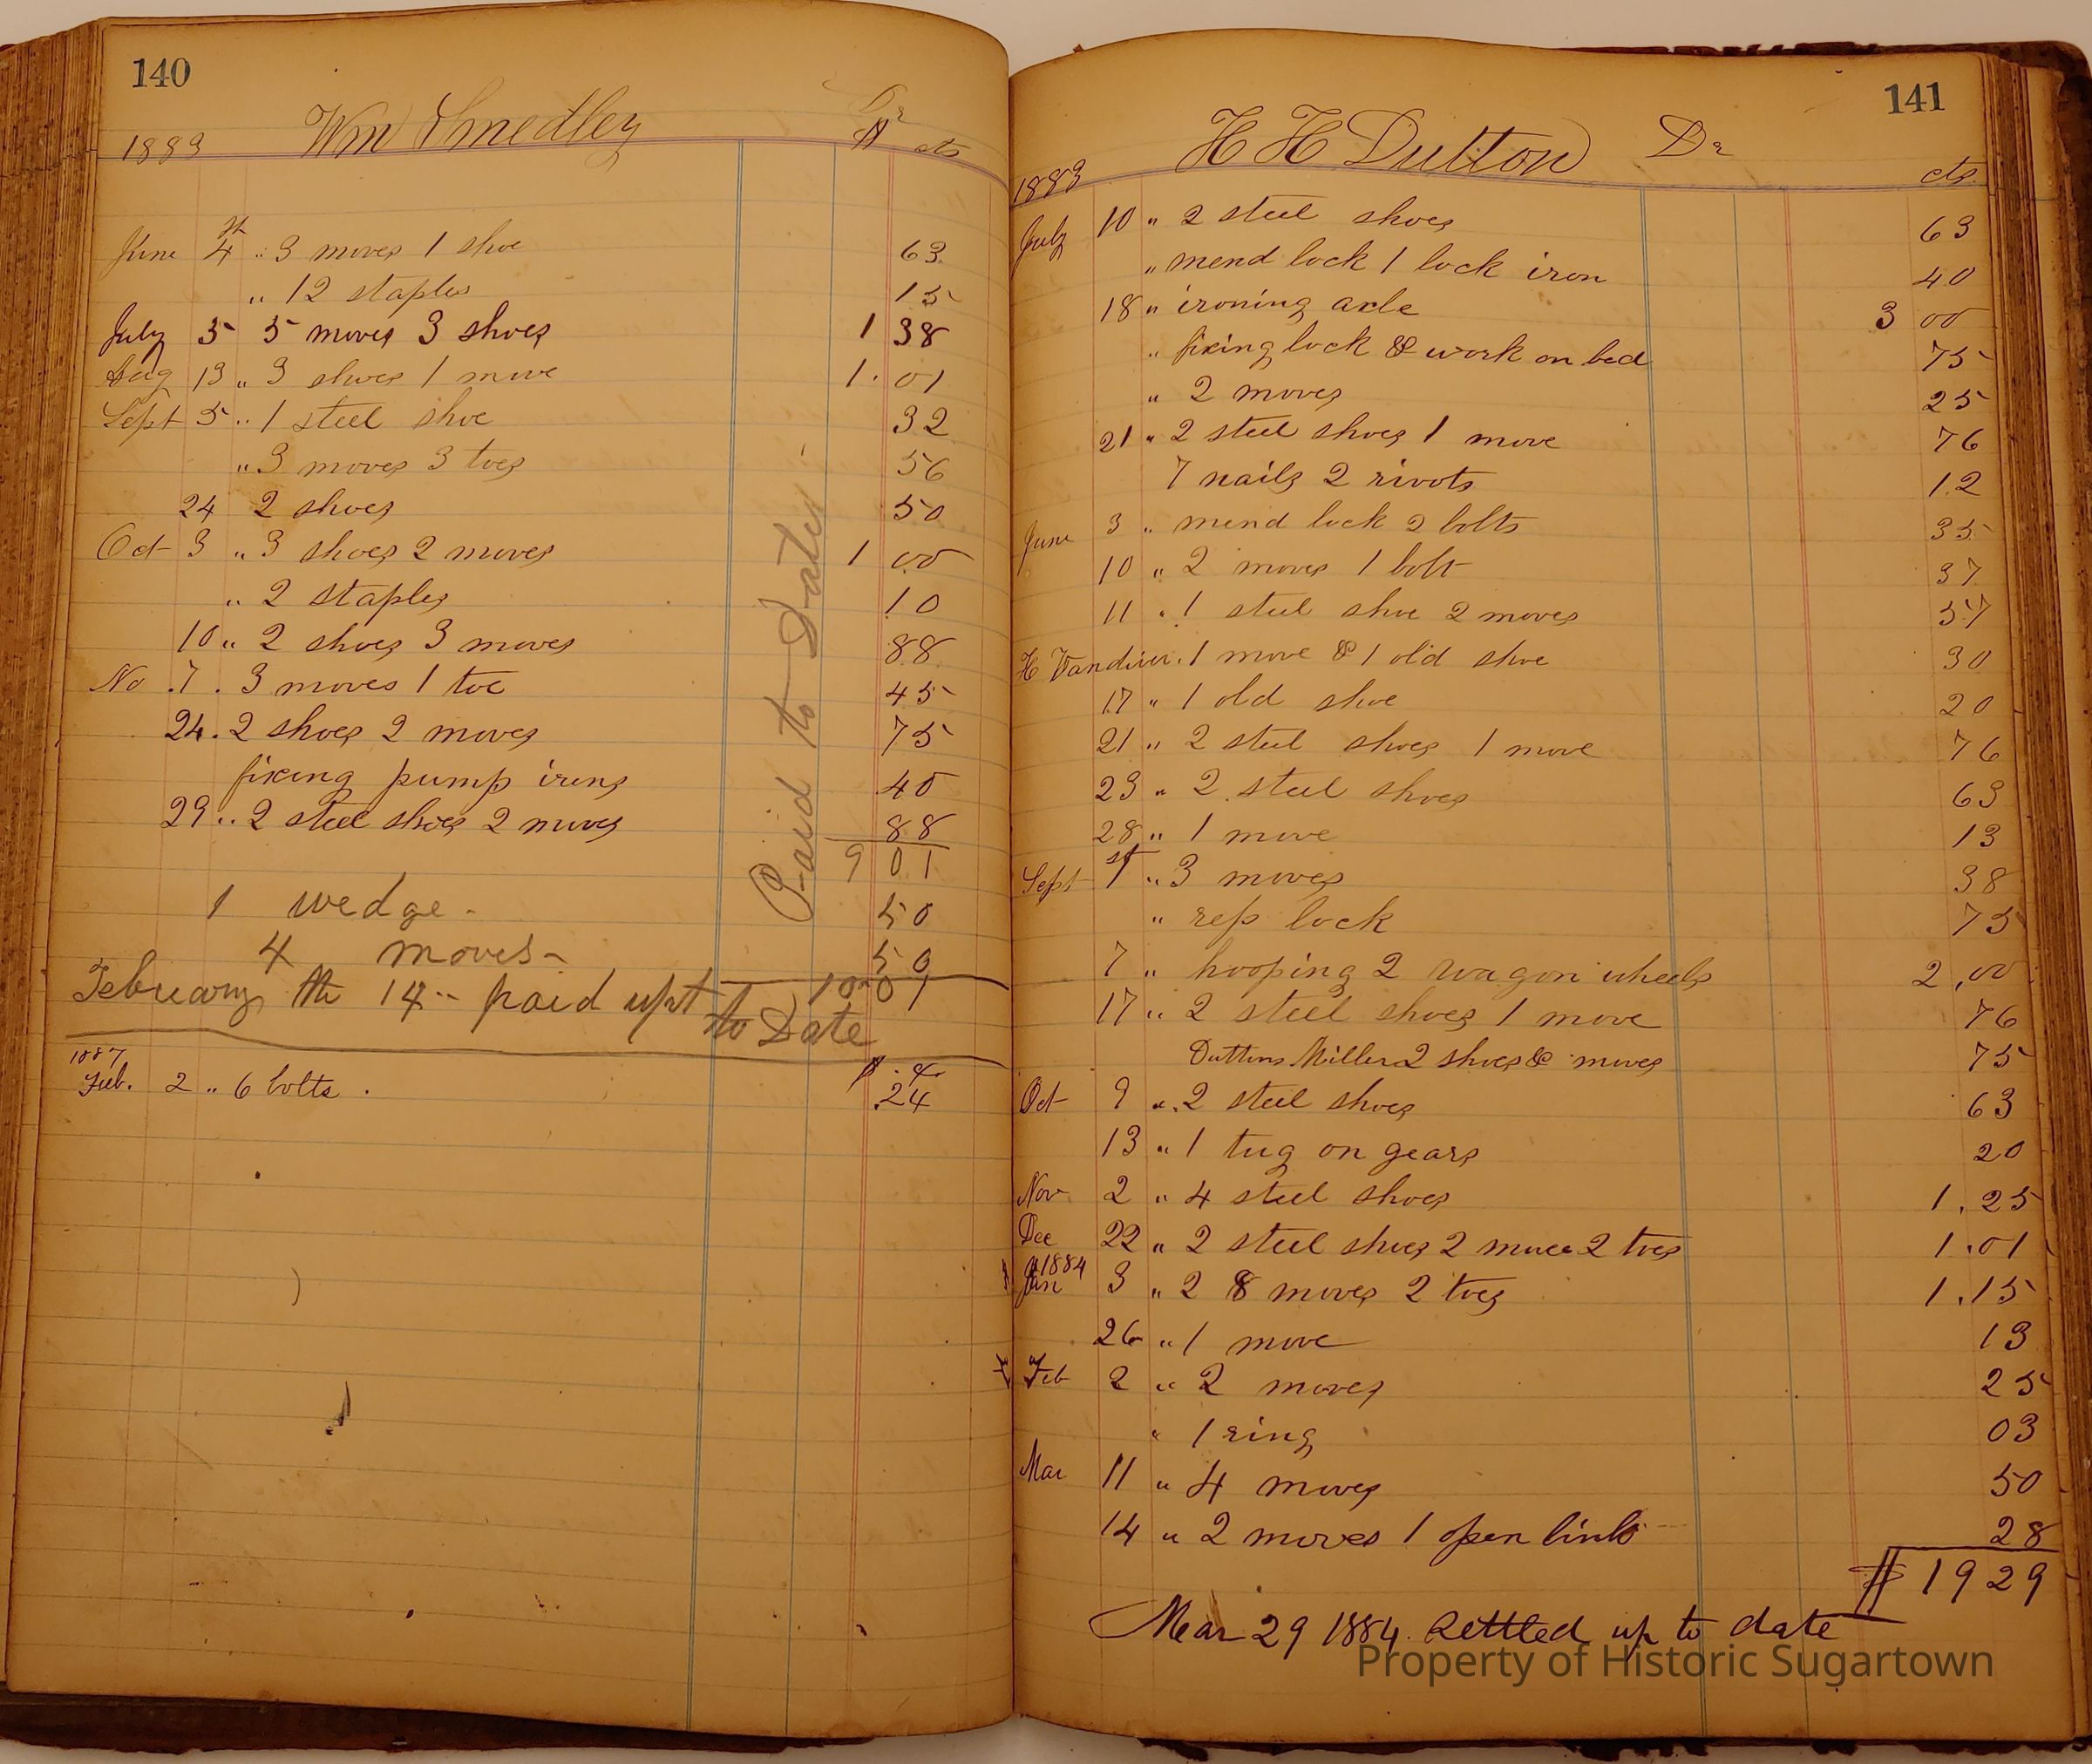 140
Wm Smedley
Dr
1883 $ cts
June 4th " 3 moves 1 shoe 63
" 12 staples 15
July 5 5 moves 3 shoes 1 38
Aug 13 " 3 shoes 1 move 1.01
Sept 5 " 1 steel shoe 32
" 3 moves 3 toes 56
24 2 shoes 50
Oct 3 " 3 shoes 2 moves 1 00
" 2 staples 10
10 " 2 shoes 3 moves 88
No 7 . 3 moves 1 toe 45
24 . 2 shoes 2 moves 75
fixing pump irons 40
29 " 2 steel shoes 2 moves 88
9 01
Paid to Date
1 wedge - 50
4 moves - 50
10 01
February the 14 - paid upt to Date
1887 $ . c
Feb. 2 " 6 bolts . .24
141
H H Dutton Dr
1883 cts
July 10 " 2 steel shoes 63
" mend lock 1 lock iron 40
18 " ironing axle 3 00
" fixing lock & work on bed 75
" 2 moves 25
21 " 2 steel shoes 1 move 76
7 nails 2 rivots 12
June 3 " mend lock 2 bolts 35
10 " 2 moves 1 bolt 37
11 " 1 steel shoe 2 moves 57
H Vandiver . 1 move & 1 old shoe 30
17 " 1 old shoe 20
21 " 2 steel shoes 1 move 76
23 " 2 steel shoes 63
28 " 1 move 13
Sept 1st " 3 moves 38
" rep lock 75
7 " hooping 2 wagon wheels 2,00
17 " 2 steel shoes 1 move 76
Duttons Miller 2 shoes & moves 75
Oct 9 " 2 steel shoes 63
13 " 1 tug on gears 20
Nov 2 " 4 steel shoes 1.25
Dec 22 " 2 steel shoes 2 moves 2 toes 1.01
1884
Jan 3 " 2 8 moves 2 toes 1.15
26 " 1 move 13
Feb 2 " 2 moves 25
" 1 ring 03
Mar 11 " 4 moves 50
14 " 2 moves 1 open link 28
$ 19 29
Mar 29 1884. Settled up to date
Property of Historic Sugartown